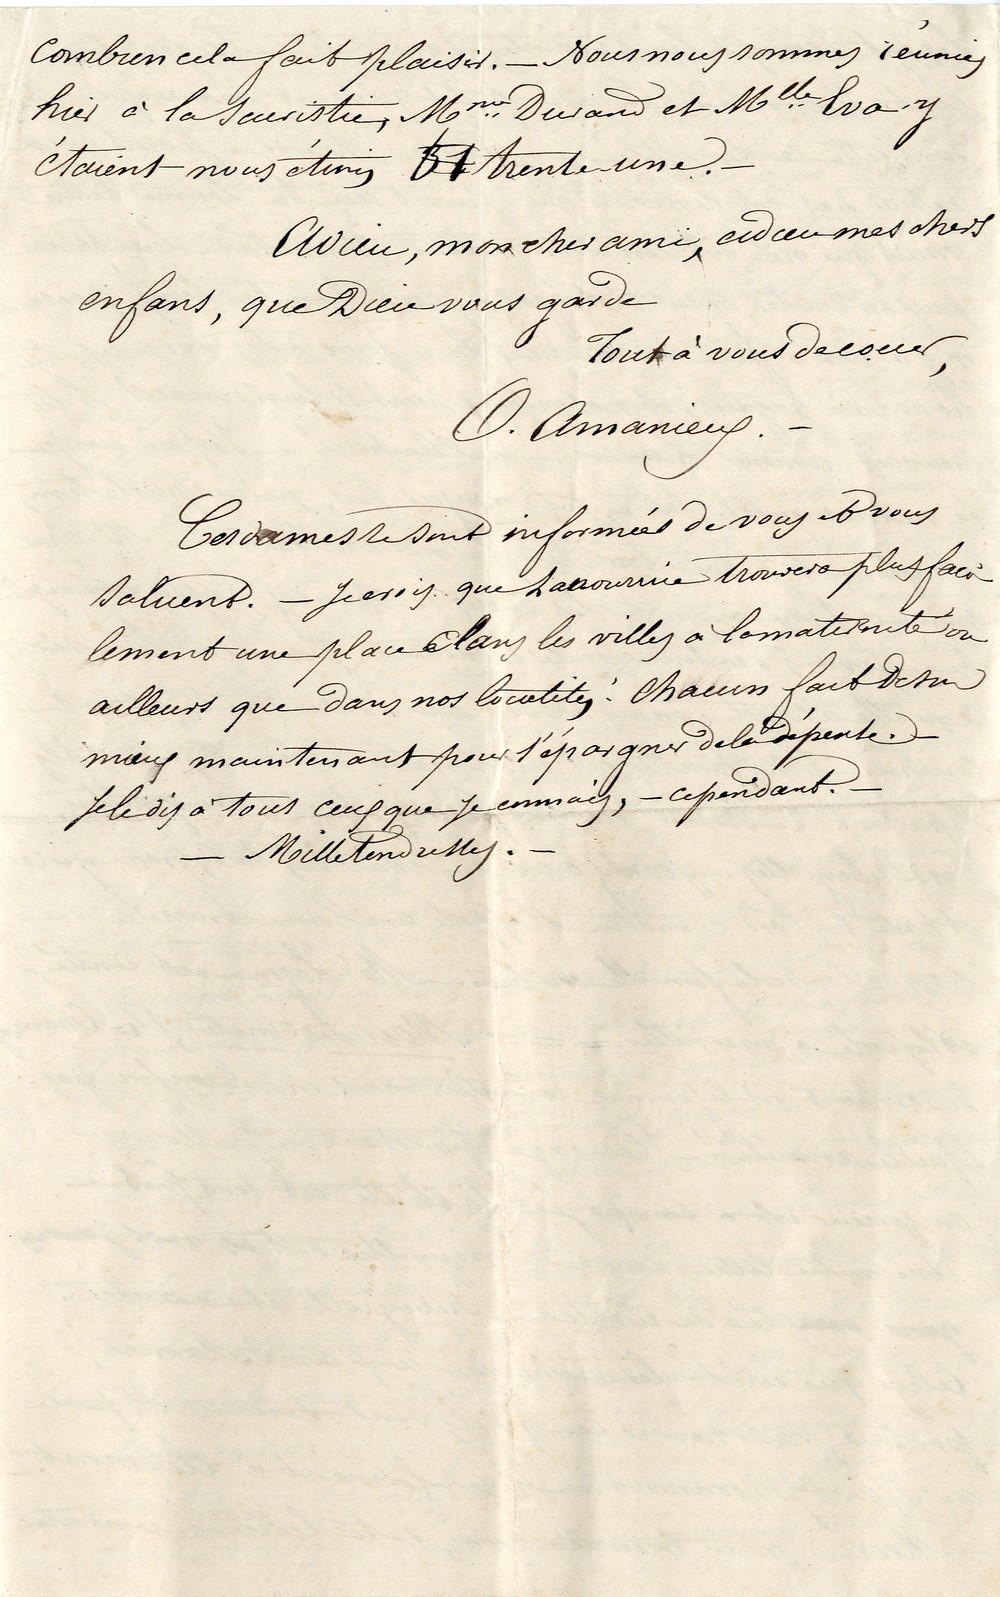 combien cela fait plaisir. — Nous nous sommes réunies
hier à la sacristie, Mme Durand et Mlle Eva y
étaient nous étions 31 trente-une. —
Adieu, mon cher ami, adieu mes chers
enfans, que Dieu vous garde
Tout à vous de cœur,
O. Amanieux. —
Ces dames se sont informées de vous et vous
saluent. — Je crois que la nourrice trouvera plus faci
lement une place dans les villes à la maternité ou
ailleurs que dans nos localités. Chacun fait de son
mieux maintenant pour s'épargner de la dépense. —
Je le dis à tous ceux que je connais, — cependant. —
— Mille tendresses. —